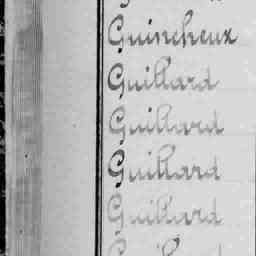 Guincheux
Guillard
Guillard
Guillard
Guillard